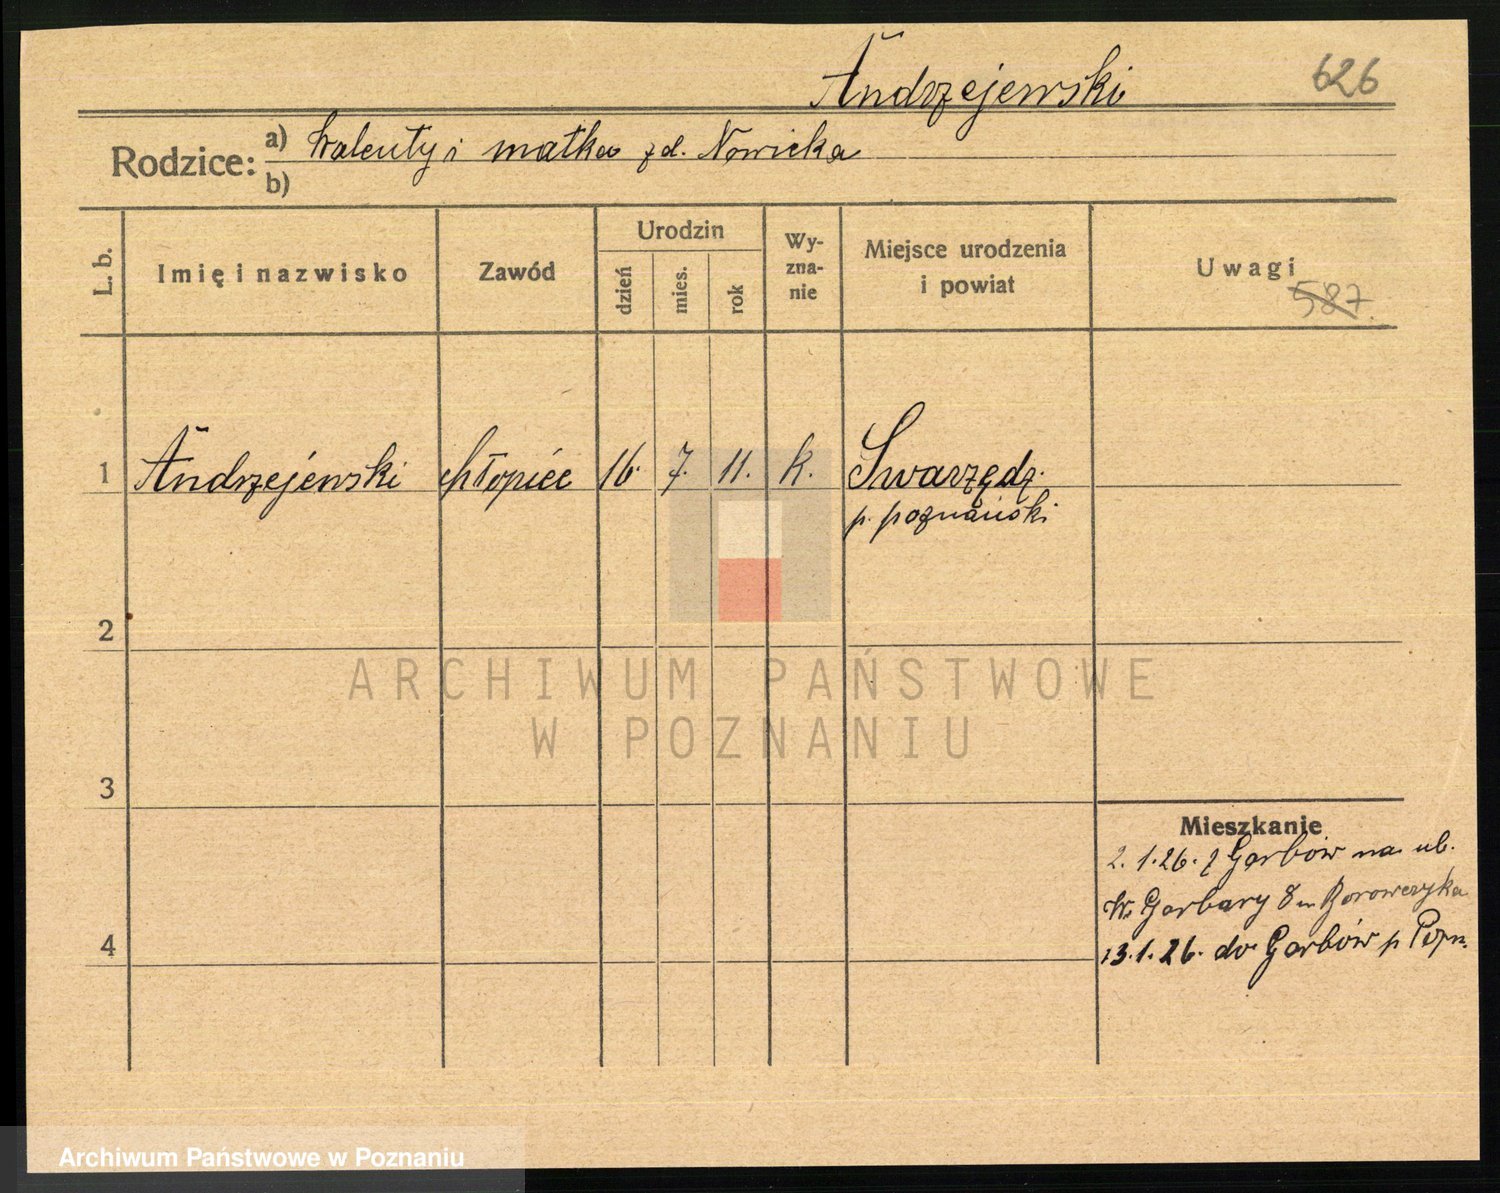 Andrzejewski 626
Rodzice: a) Walenty i matka zd. Nowicka
b)
L. b. Imię i nazwisko Zawód Urodzin dzień mies. rok Wy-zna-nie Miejsce urodzenia i powiat Uwagi
587.
1 Andrzejewski chłopiec 16. 7. 11. k. Swarzędz.
p. poznański
2
3
4
Mieszkanie
2.1.26. z Garbów na ul.
W. Garbary 8 m Borowczyka
13.1.26. do Garbów p Pozn.
ARCHIWUM PAŃSTWOWE
W POZNANIU
Archiwum Państwowe w Poznaniu